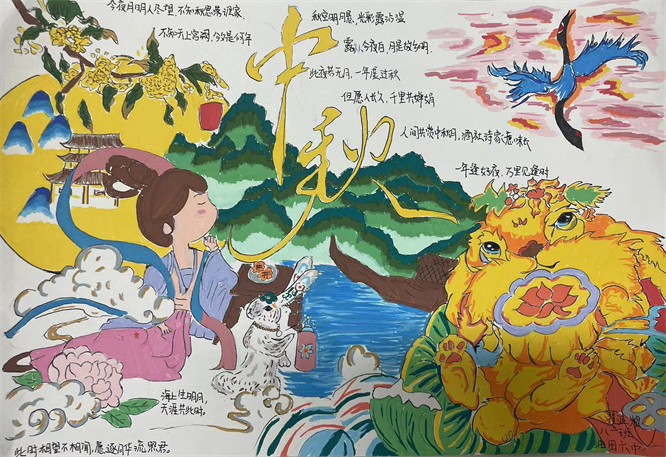 今夜月明人尽望,不知秋思落谁家.
不知天上宫阙,今夕是何年
秋空明月悬,光彩露沾湿
露从今夜白,月是故乡明.
此夜若无月,一年虚过秋
但愿人长久,千里共婵娟
一年逢好夜,万里见明时
中秋
海上生明月,
天涯共此时.
此时相望不相闻,愿逐月华流照君.